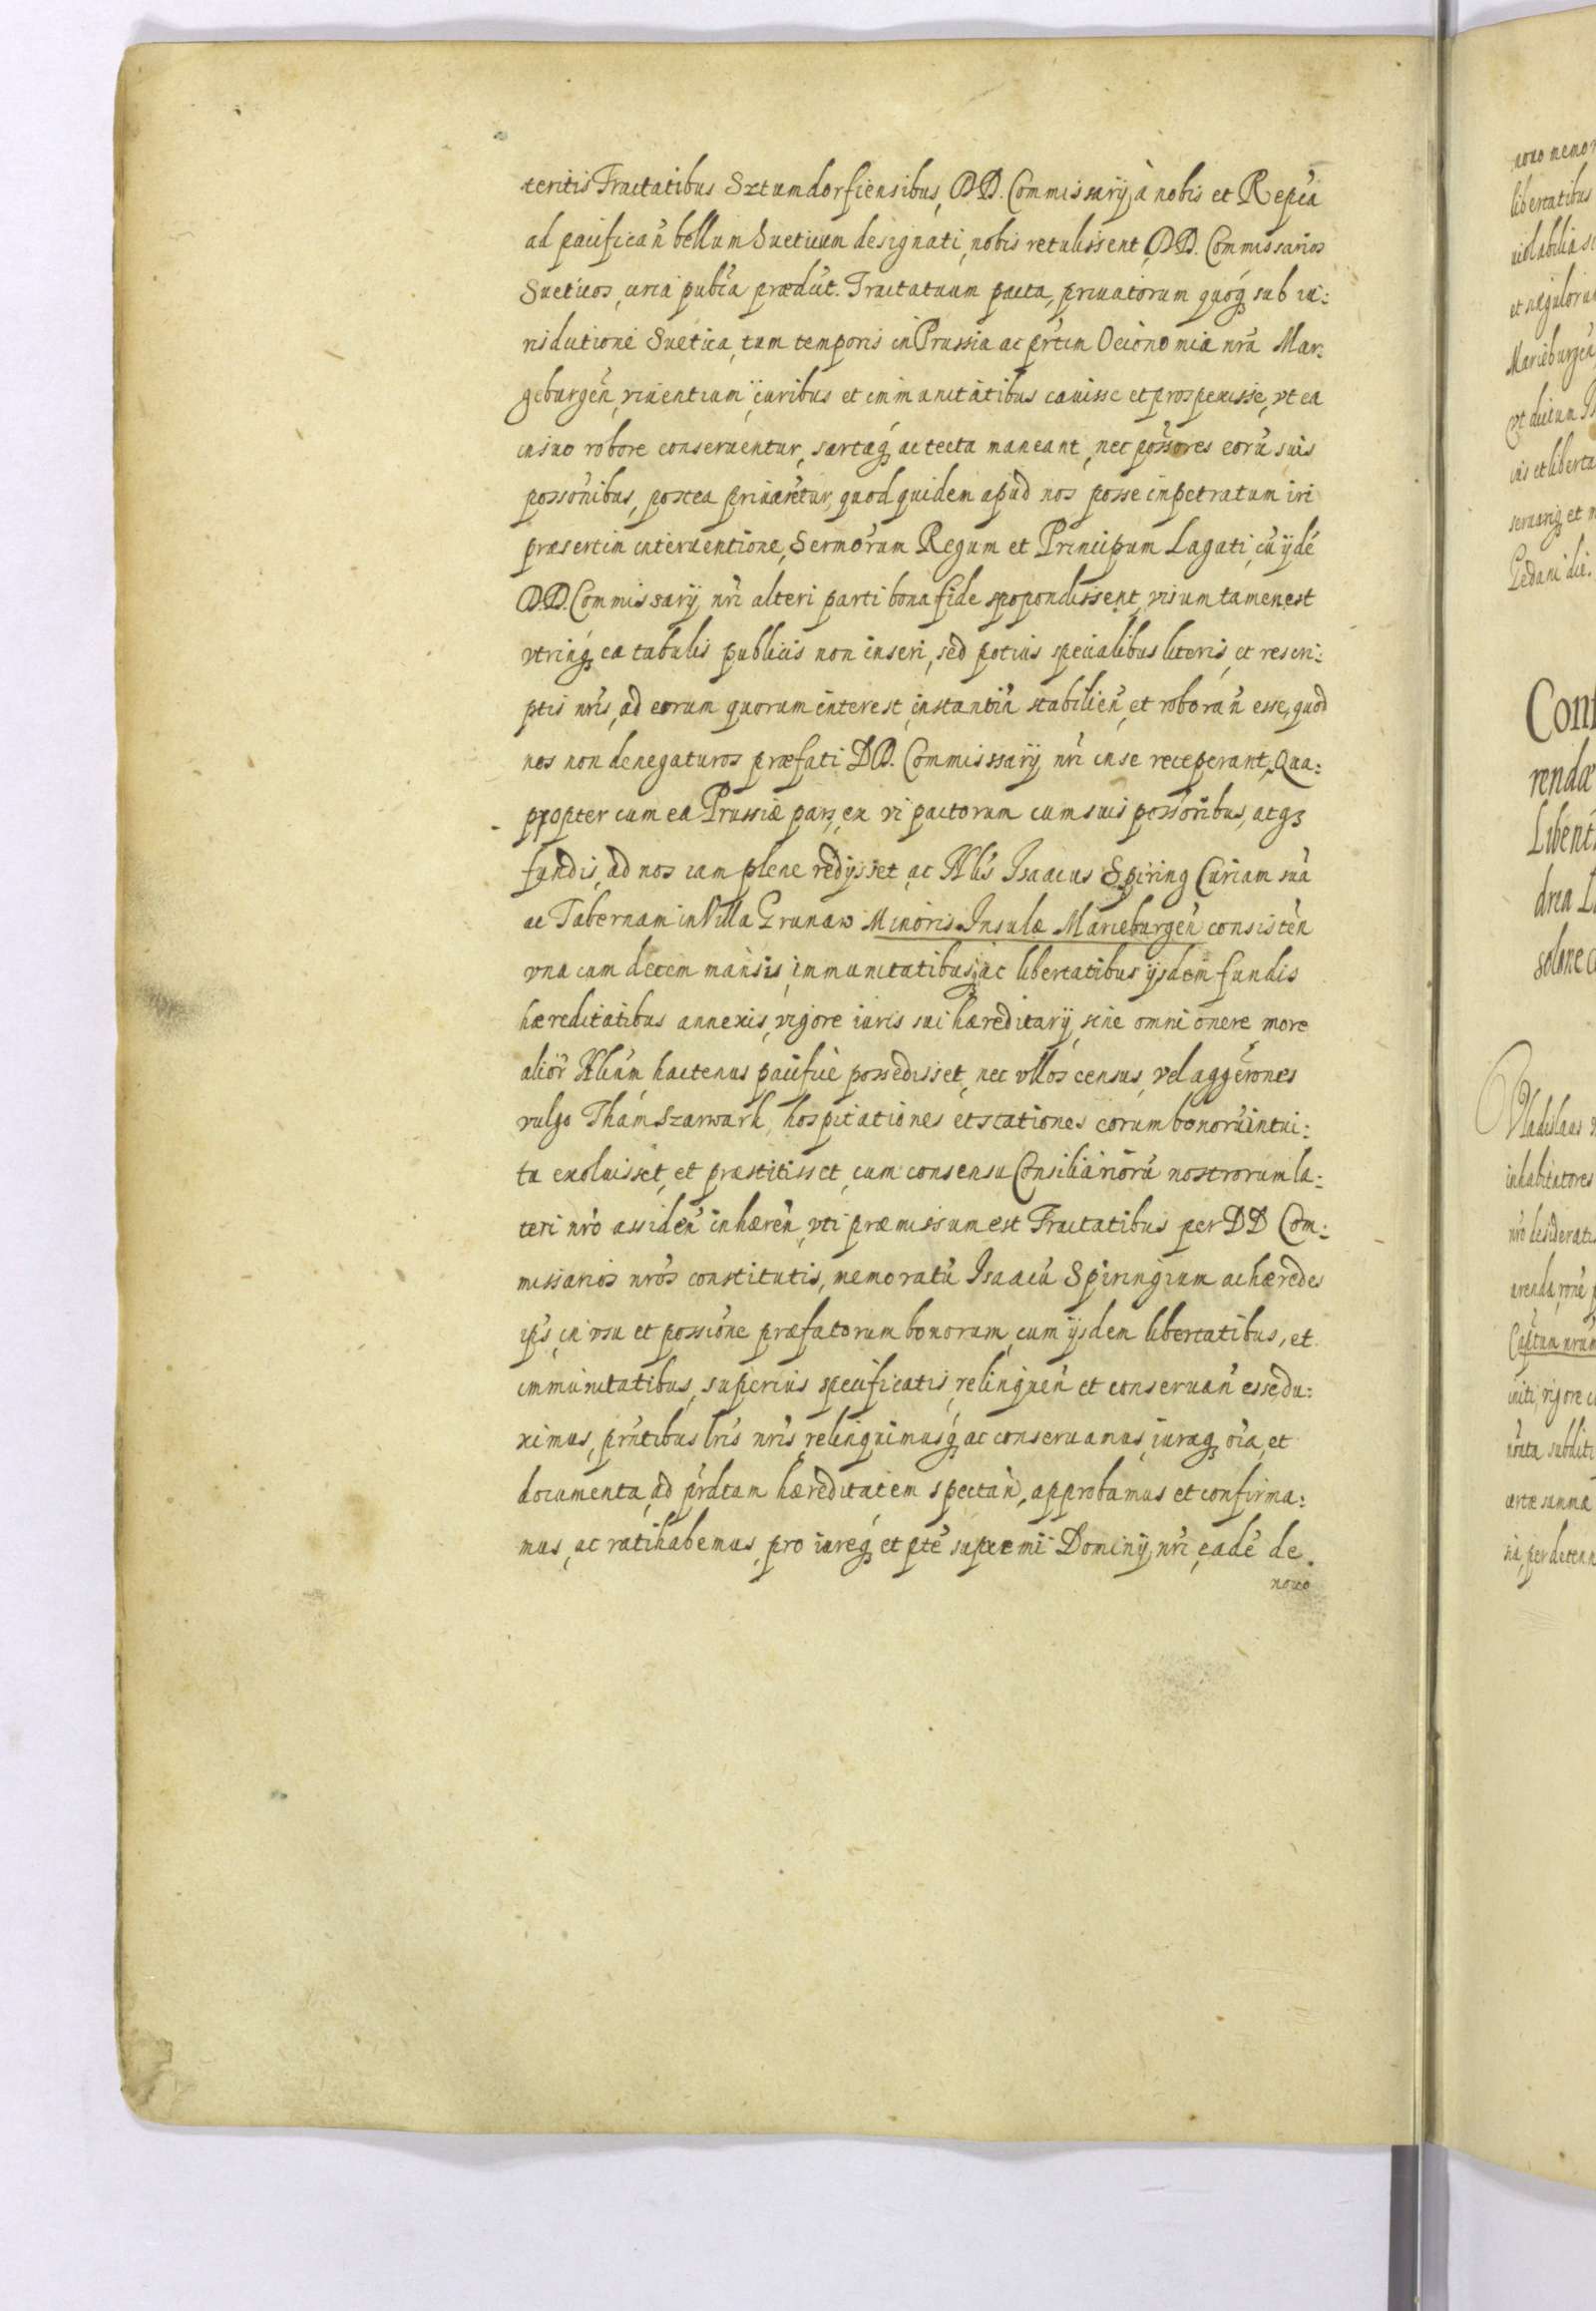 teritis Tractatibus Sztumdorfiensibus, DD. Commissarij, à nobis et Repca
ad pacifican bellum Sueticum designati, nobis retulissent, DD. Commissarios
Sueticos, circa pubca prædict. Tractatuum pacta, priuatorum quoq sub iu:
risdictione Suetica, tum temporis in Prussia ac prtim Oeconomia nra Mar:
geburgen, viuentium, iuribus et immunitatibus cauisse et prospexisse, vt ea
in suo robore conseruentur, sartaq ac tecta maneant, nec possores eorū suis
possonibus, postea priuarētur, quod quidem apud nos posse impetratum iri
præsertim interuentione, Sermorum Regum et Principum Lagati, cū ijdē
DD. Commissarij nri alteri parti bona fide spopondissent, visum tamen est
vtrinq ea tabulis publicis non inseri, sed potius specialibus literis, et rescri:
ptis nris, ad eorum quorum interest, instantin stabilien, et roboran esse, quod
nos non denegaturos præfati DD. Commissarij nri in se receperant, Qua:
propter cum ea Prussiæ pars, ex vi pactorum cum suis possoribus, atqз
fundis, ad nos iam plene redijsset, ac Nlis Isaacus Spiring Curiam suā
ac Tabernam in Villa Grunaw Minoris Insulæ Marieburgen consisten
vna cum decem mansis, immunitatibusq ac libertatibus ijsdem fundis
hæreditatibus annexis, vigore iuris sui hæreditarij, sine omni onere more
alior Nlium, hactenus pacificè possedisset, nec vllos census, vel aggerones
vulgo Tham Szarwark, hospitationes et stationes eorum bonorū intui:
tu exoluisset, et præstitisset, cum consensu Consiliariorū nostrorum la:
teri nro assiden inhæren, vti præmissum est Tractatibus per DD Com:
missarios nros constitutis, memoratū Isaacū Spiringium ac hæredes
ips, in vsu et possione præfatorum bonorum, cum ijsdem libertatibus, et
immunitatibus, superius specificatis, relinquen et conseruan esse du:
ximus, prntibus lris nris, relinquimusq ac conseruamus, iuraq oīa, et
documenta, ad prdtam hæreditatem spectan, approbamus et confirma:
mus, ac ratihabemus, pro iureq et ptē supremi Dominij, nri, eadē de
nouo